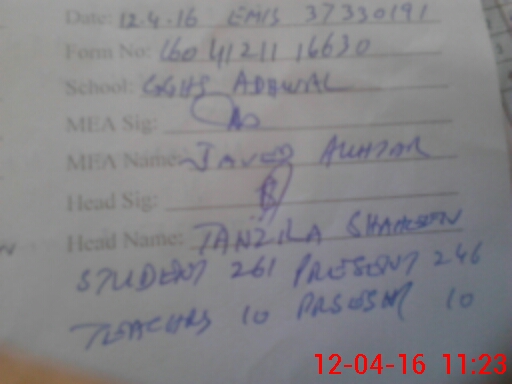 Date: 12.4.16 EMIS 37330191
Form No: 160 41211 16630
School: GGHS ADHWAL
MEA Sig:
MEA Name: JAVED AKHTAR
Head Sig:
Head Name: TANZILA SHAHEEN
STUDENT 261 PRESENT 246
TEACHRS 10 PRSESNT 10
12-04-16 11:23